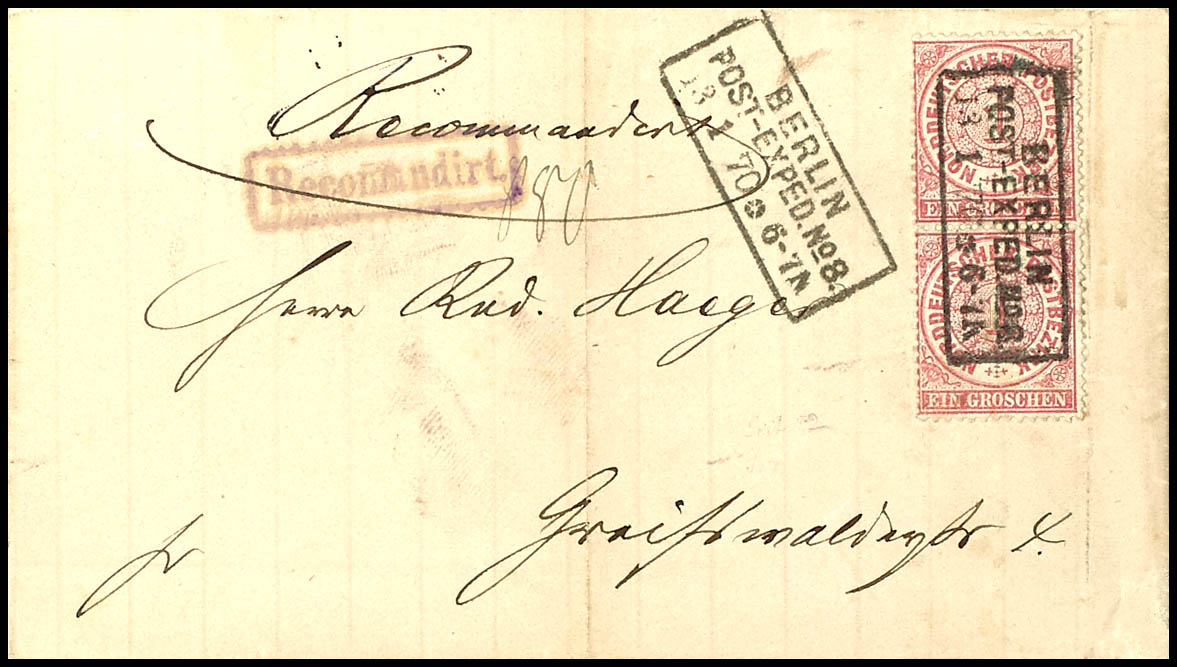 Recommandirt
Recomandirt.
180
BERLIN
POST-EXPED.No8.
13 1 70 6-7N
NORDDEUTSCHER POSTBEZIRK
EIN GROSCHEN
BERLIN
POST-EXPED.No8.
13 1 70 6-7N
NORDDEUTSCHER POSTBEZIRK
EIN GROSCHEN
Herrn Rud. Haeger
Greifswalderstr 4.
fr